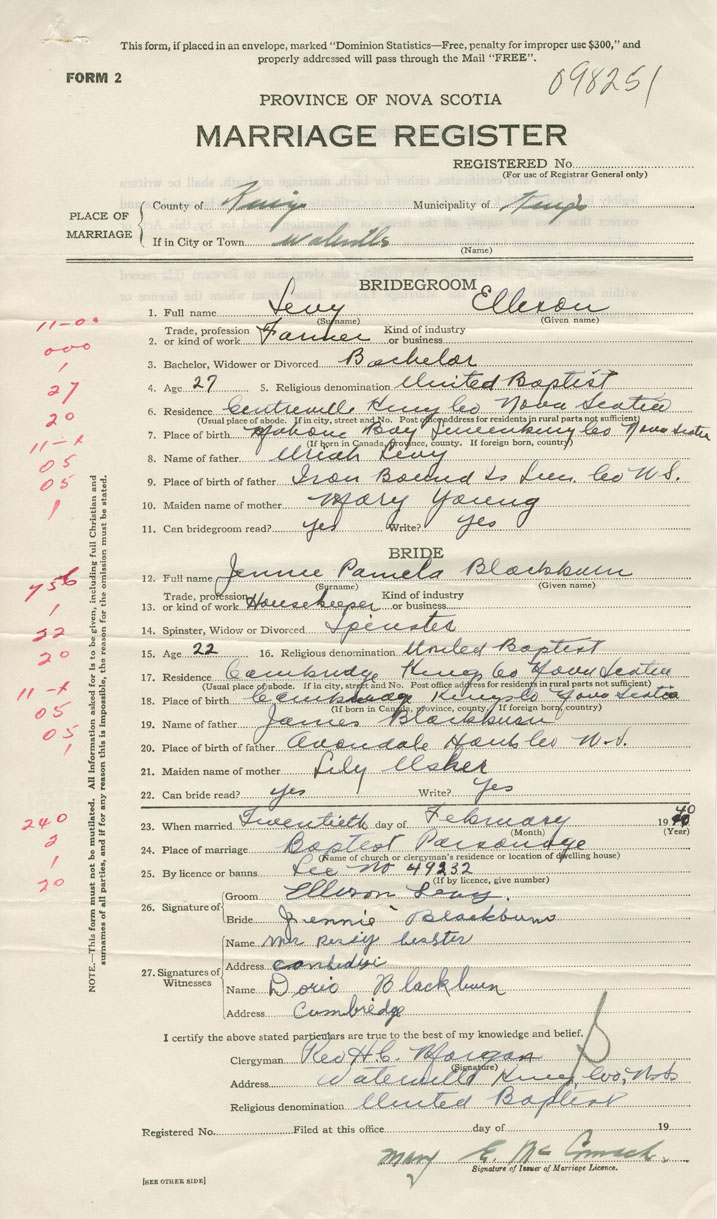 This form, if placed in an envelope, marked "Dominion Statistics—Free, penalty for improper use $300," and
properly addressed will pass through the Mail "FREE".
FORM 2
098251
PROVINCE OF NOVA SCOTIA
MARRIAGE REGISTER
REGISTERED No.
(For use of Registrar General only)
PLACE OF MARRIAGE
County of Kings Municipality of Kings
If in City or Town Waterville
(Name)
BRIDEGROOM
1. Full name Levy Ellison
(Surname) (Given name)
11-0
2. Trade, profession or kind of work Farmer Kind of industry or business
000
3. Bachelor, Widower or Divorced Bachelor
1
4. Age 27 5. Religious denomination United Baptist
27
6. Residence Centreville Kings Co Nova Scotia
20
(Usual place of abode. If in city, street and No. Post office address for residents in rural parts not sufficient)
7. Place of birth Mahone Bay Lunenburg Co Nova Scotia
11-x
(If born in Canada, province, county. If foreign born, country)
8. Name of father Uriah Levy
05
9. Place of birth of father Iron Bound Is Lun. Co N.S.
05
10. Maiden name of mother Mary Young
1
11. Can bridegroom read? yes Write? yes
BRIDE
12. Full name Jennie Pamela Blackburn
(Surname) (Given name)
756
13. Trade, profession or kind of work Housekeeper Kind of industry or business
1
14. Spinster, Widow or Divorced Spinster
22
15. Age 22 16. Religious denomination United Baptist
20
17. Residence Cambridge Kings Co Nova Scotia
(Usual place of abode. If in city, street and No. Post office address for residents in rural parts not sufficient)
11-x
18. Place of birth Cambridge Kings Co Nova Scotia
(If born in Canada, province, county. If foreign born, country)
05
19. Name of father James Blackburn
05
20. Place of birth of father Avondale Hants Co N.S.
1
21. Maiden name of mother Lily Usher
22. Can bride read? yes Write? yes
240
23. When married Twentieth day of February 1940
(Month) (Year)
2
24. Place of marriage Baptist Parsonage
(Name of church or clergyman's residence or location of dwelling house)
1
25. By licence or banns Lic No 49232
(If by licence, give number)
20
26. Signature of
Groom Ellison Levy.
Bride Jennie Blackburn
27. Signatures of Witnesses
Name Mrs Percy
Address Cambridge
Name Doris Blackburn
Address Cambridge
I certify the above stated particulars are true to the best of my knowledge and belief.
Clergyman Rev H. C. Morgan
(Signature)
Address Waterville Kings Co, N.S
Religious denomination United Baptist
Registered No. Filed at this office day of 19
Mary E. McCormack.
Signature of Issuer of Marriage Licence.
[SEE OTHER SIDE]
NOTE.—This form must not be mutilated. All information asked for is to be given, including full Christian and
surnames of all parties, and if for any reason this is impossible, the reason for the omission must be stated.